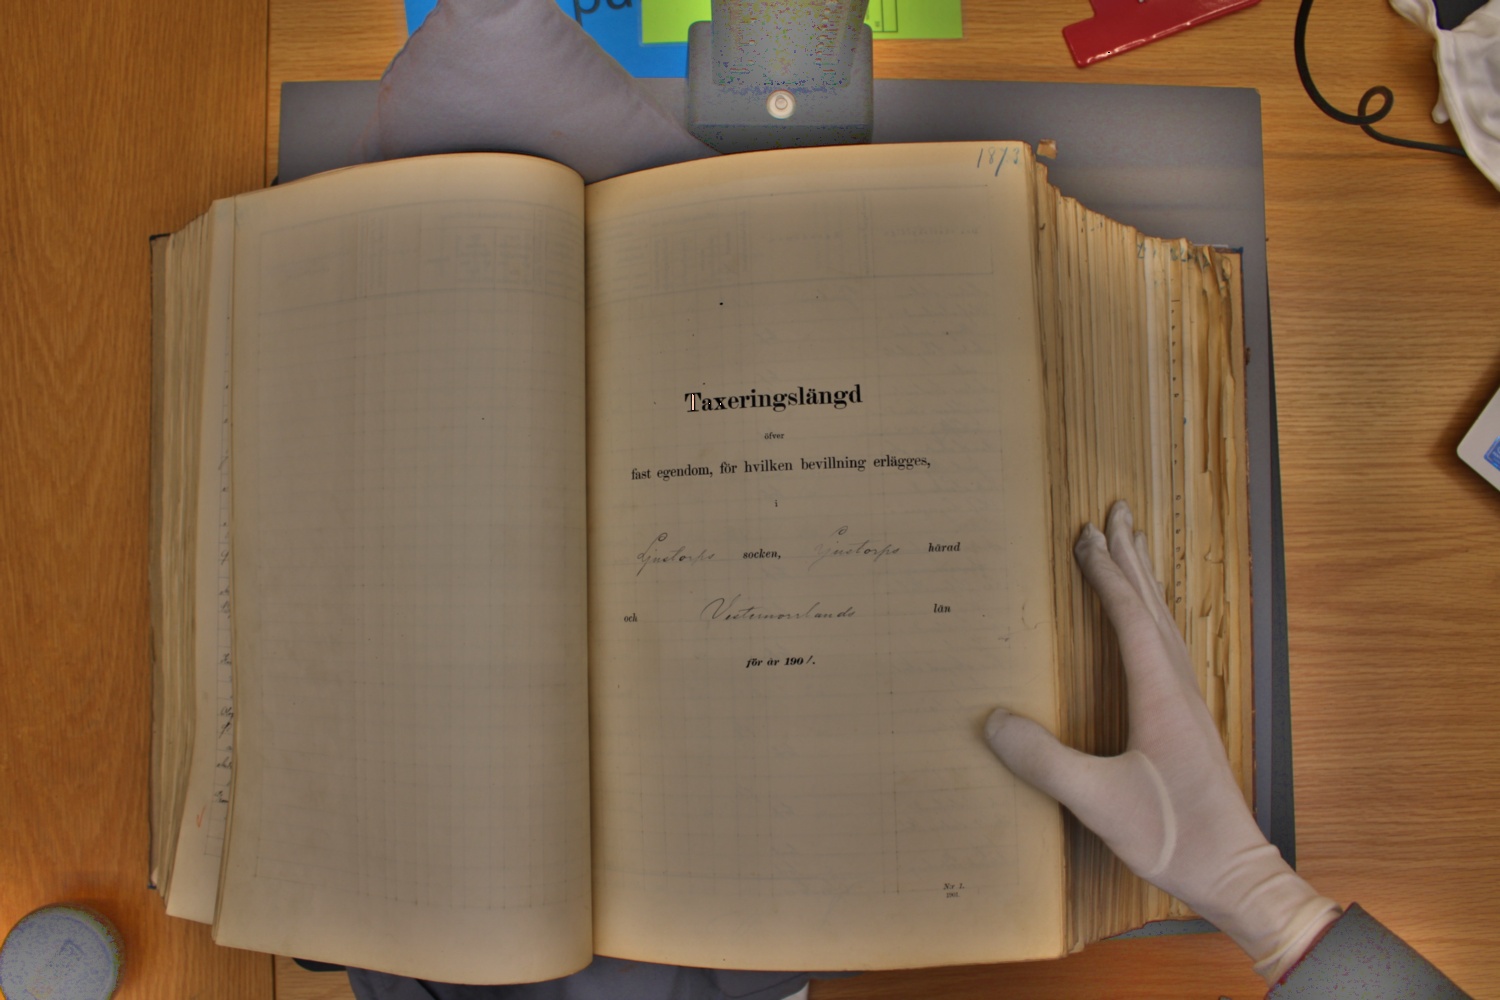 1873
Taxeringslängd
öfver
fast egendom, för hvilken bevillning erlägges,
i
Ljustorps socken, Ljustorps härad
och Vesternorrlands län
för år 1901.
N:r 1.
1901.